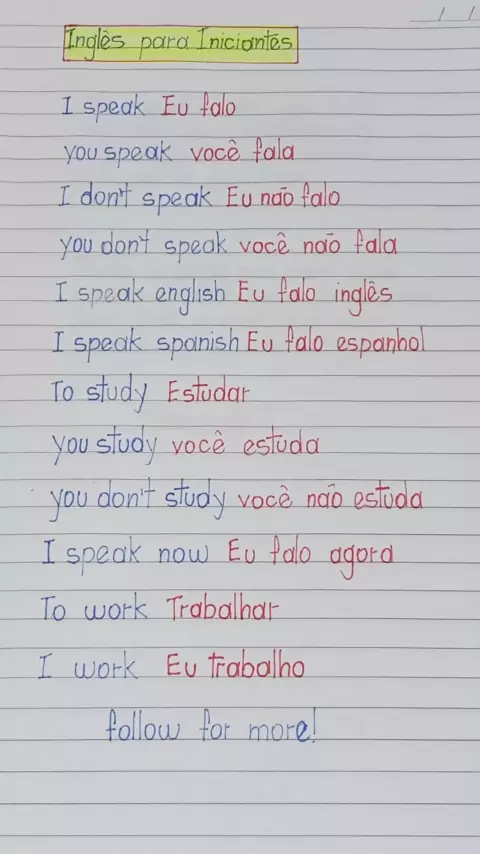 Inglês para Iniciantes
I speak Eu falo
you speak você fala
I don't speak Eu não falo
you don't speak você não fala
I speak english Eu falo inglês
I speak spanish Eu falo espanhol
To study Estudar
you study você estuda
you don't study você não estuda
I speak now Eu falo agora
To work Trabalhar
I work Eu trabalho
follow for more!